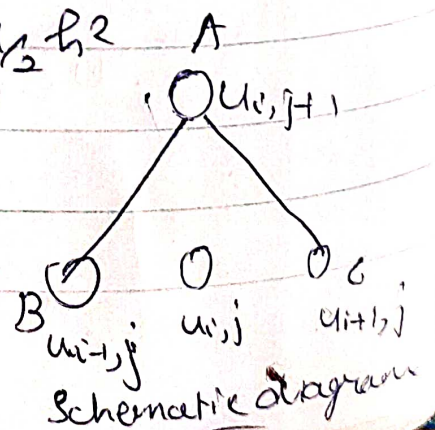 ½ h²
A
u i, j+1
B
C
u i-1, j
u i, j
u i+1, j
Schematic diagram